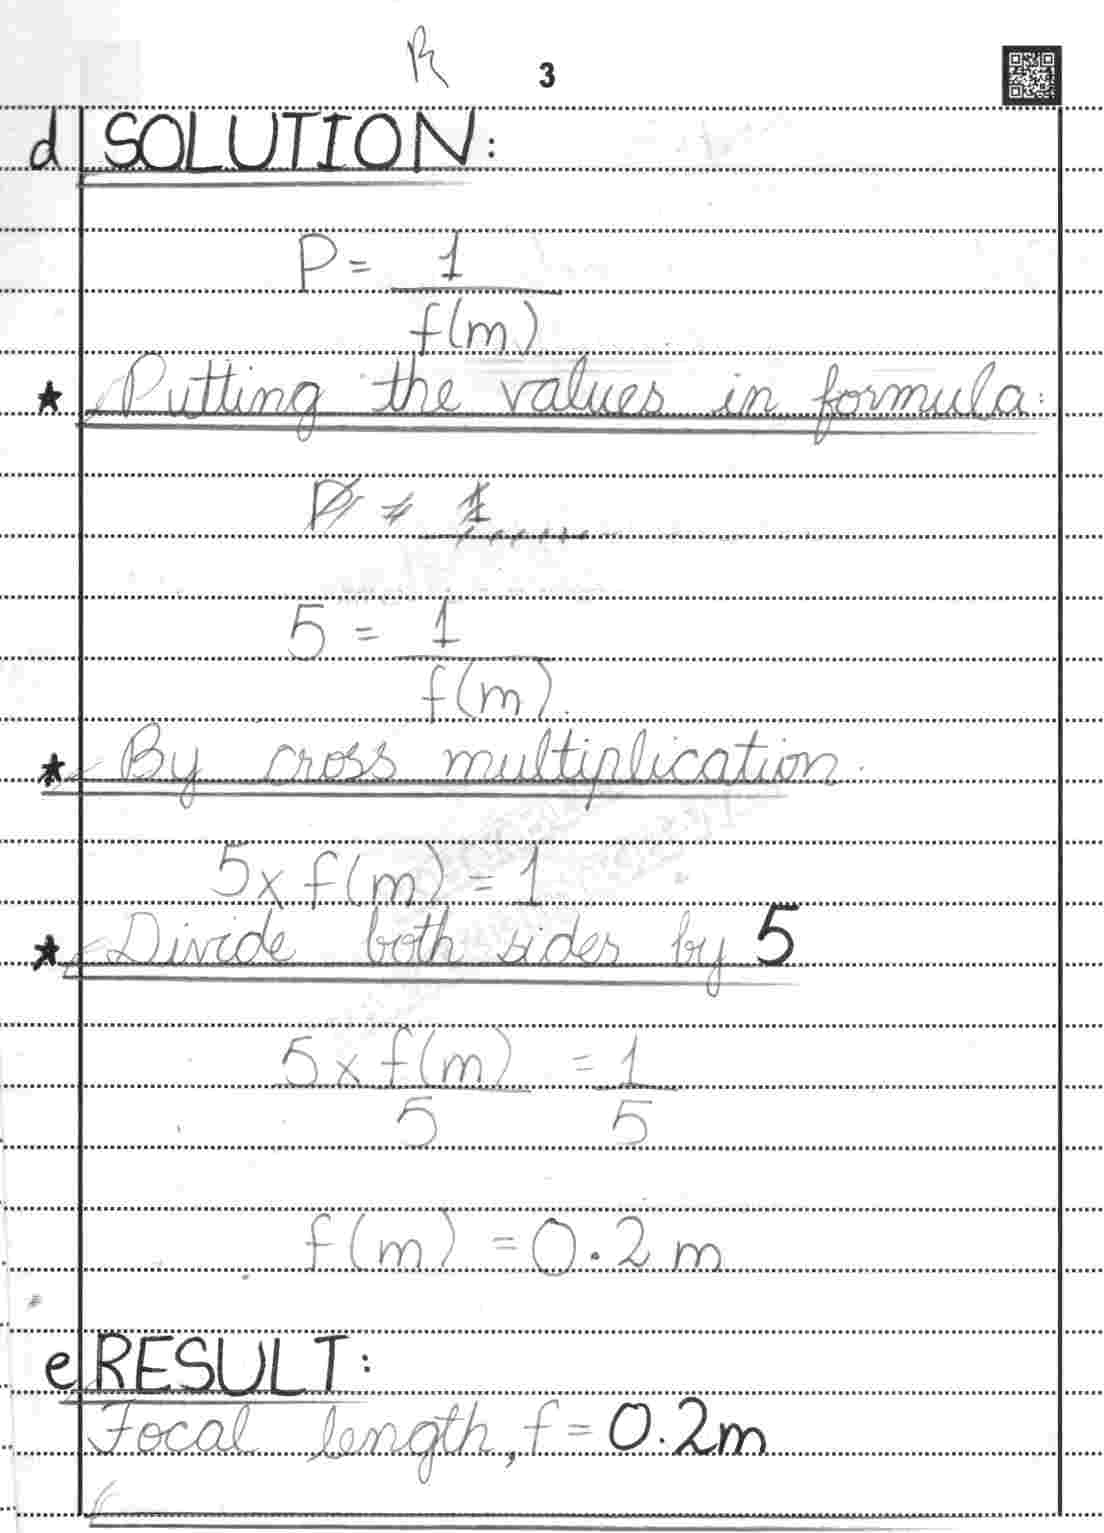 R 3
d SOLUTION:
P = 1
f(m)
★ Putting the values in formula:
P = 1
5 = 1
f(m).
★ By cross multiplication.
5 x f(m) = 1
★ Divide both sides by 5
5 x f(m) = 1
5 5
f(m) = 0.2 m
e RESULT:
Focal length, f = 0.2m